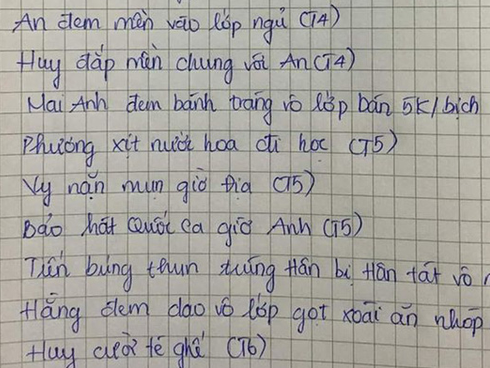 An đem mền vào lớp ngủ (T4)
Huy đắp mền chung với An (T4)
Mai Anh đem bánh tráng vô lớp bán 5K/bịch
Phương xịt nước hoa đi học (T5)
Vy nặn mụn giờ Địa (T5)
Bảo hát Quốc ca giờ Anh (T5)
Tiến búng thun trúng Hân bị Hân tát vô
Hằng đem dao vô lớp gọt xoài ăn nhóp
Huy cười té ghế (T6)